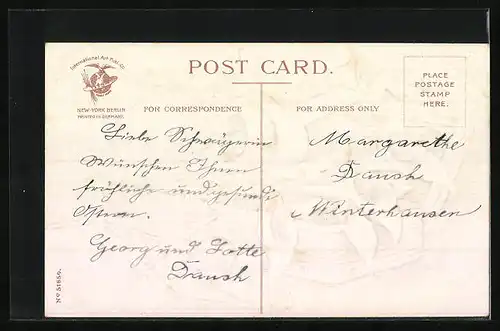 International Art Publ. Co.
NEW-YORK BERLIN
PRINTED IN GERMANY.
POST CARD.
PLACE
POSTAGE
STAMP
HERE.
FOR CORRESPONDENCE
FOR ADDRESS ONLY
Liebe Schwägerin
Wünschen Ihnen
fröhliche und gesunde
Ostern.
Georg und Lotte
Dansk
Margarethe
Dansk
Winterhausen
No 51856.